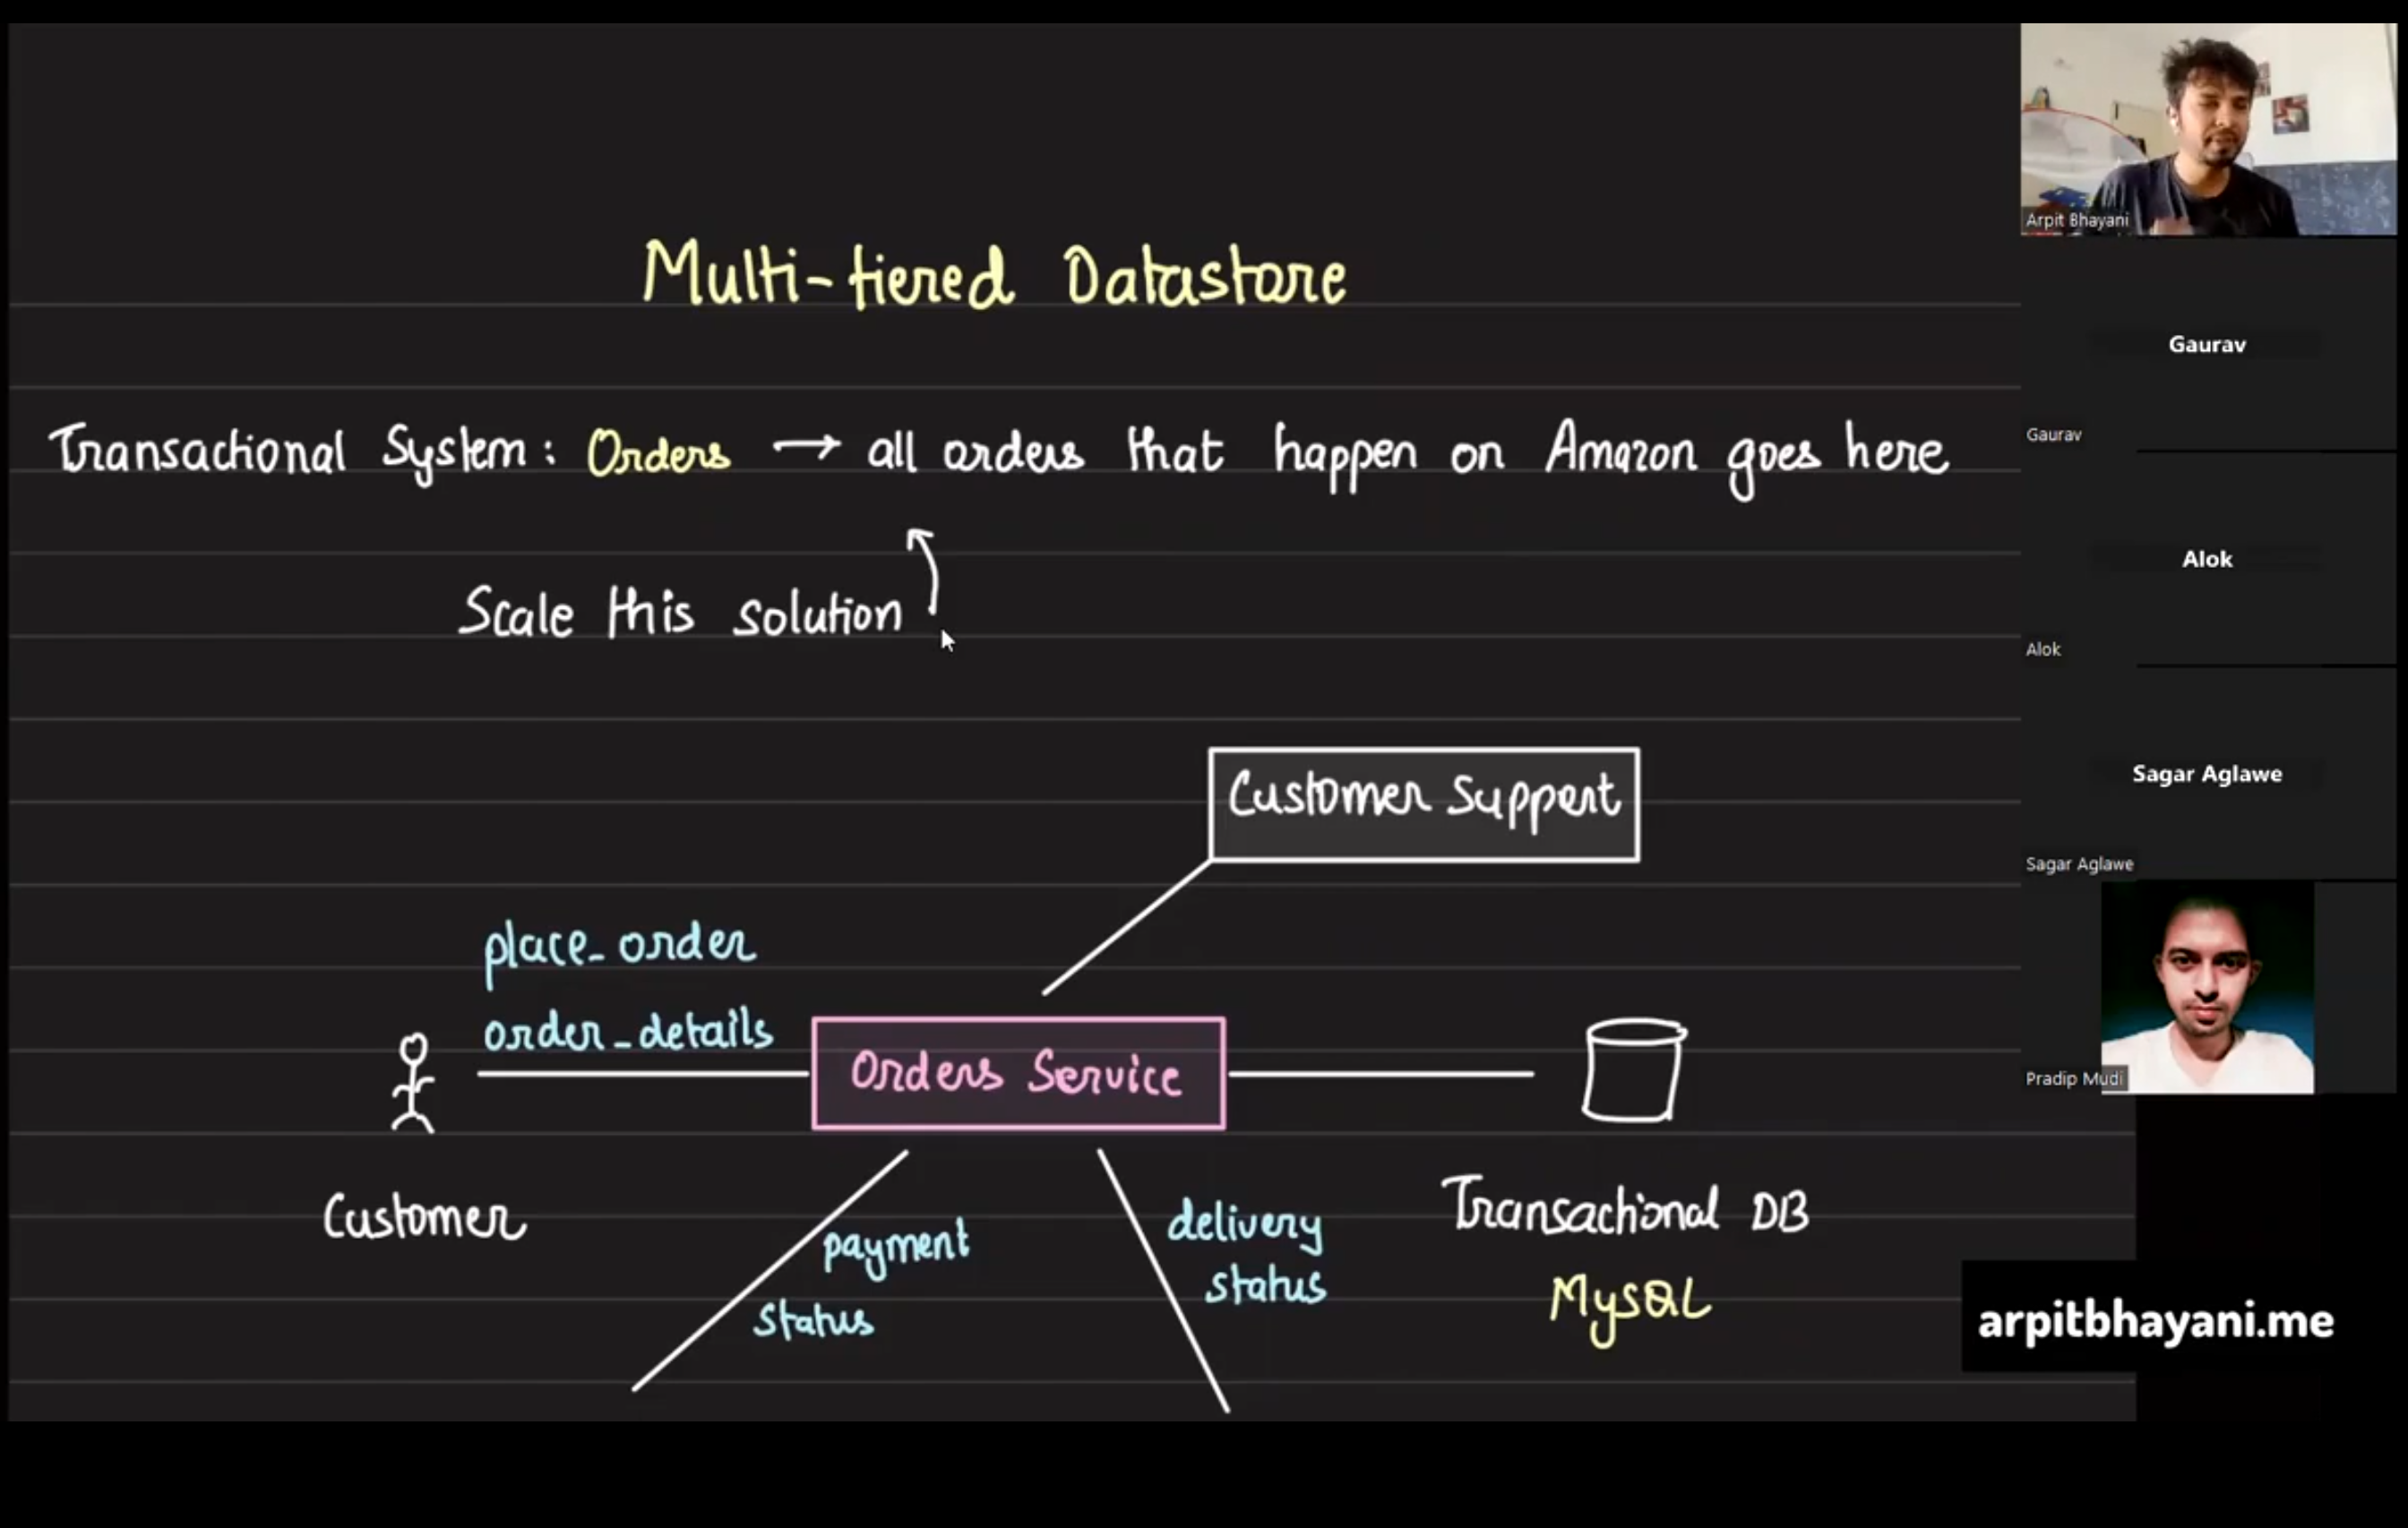 Multi-tiered Datastore
Transactional System: Orders → all orders that happen on Amazon goes here
Scale this solution
Customer Support
place_order
order_details
Orders Service
Customer
payment
status
delivery
status
Transactional DB
MySQL
Arpit Bhayani
Gaurav
Gaurav
Alok
Alok
Sagar Aglawe
Sagar Aglawe
Pradip Mudi
arpitbhayani.me